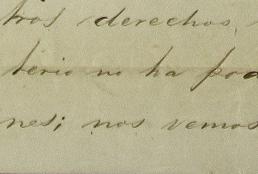 tros derechos,
terio no ha pod
nes; nos vemos